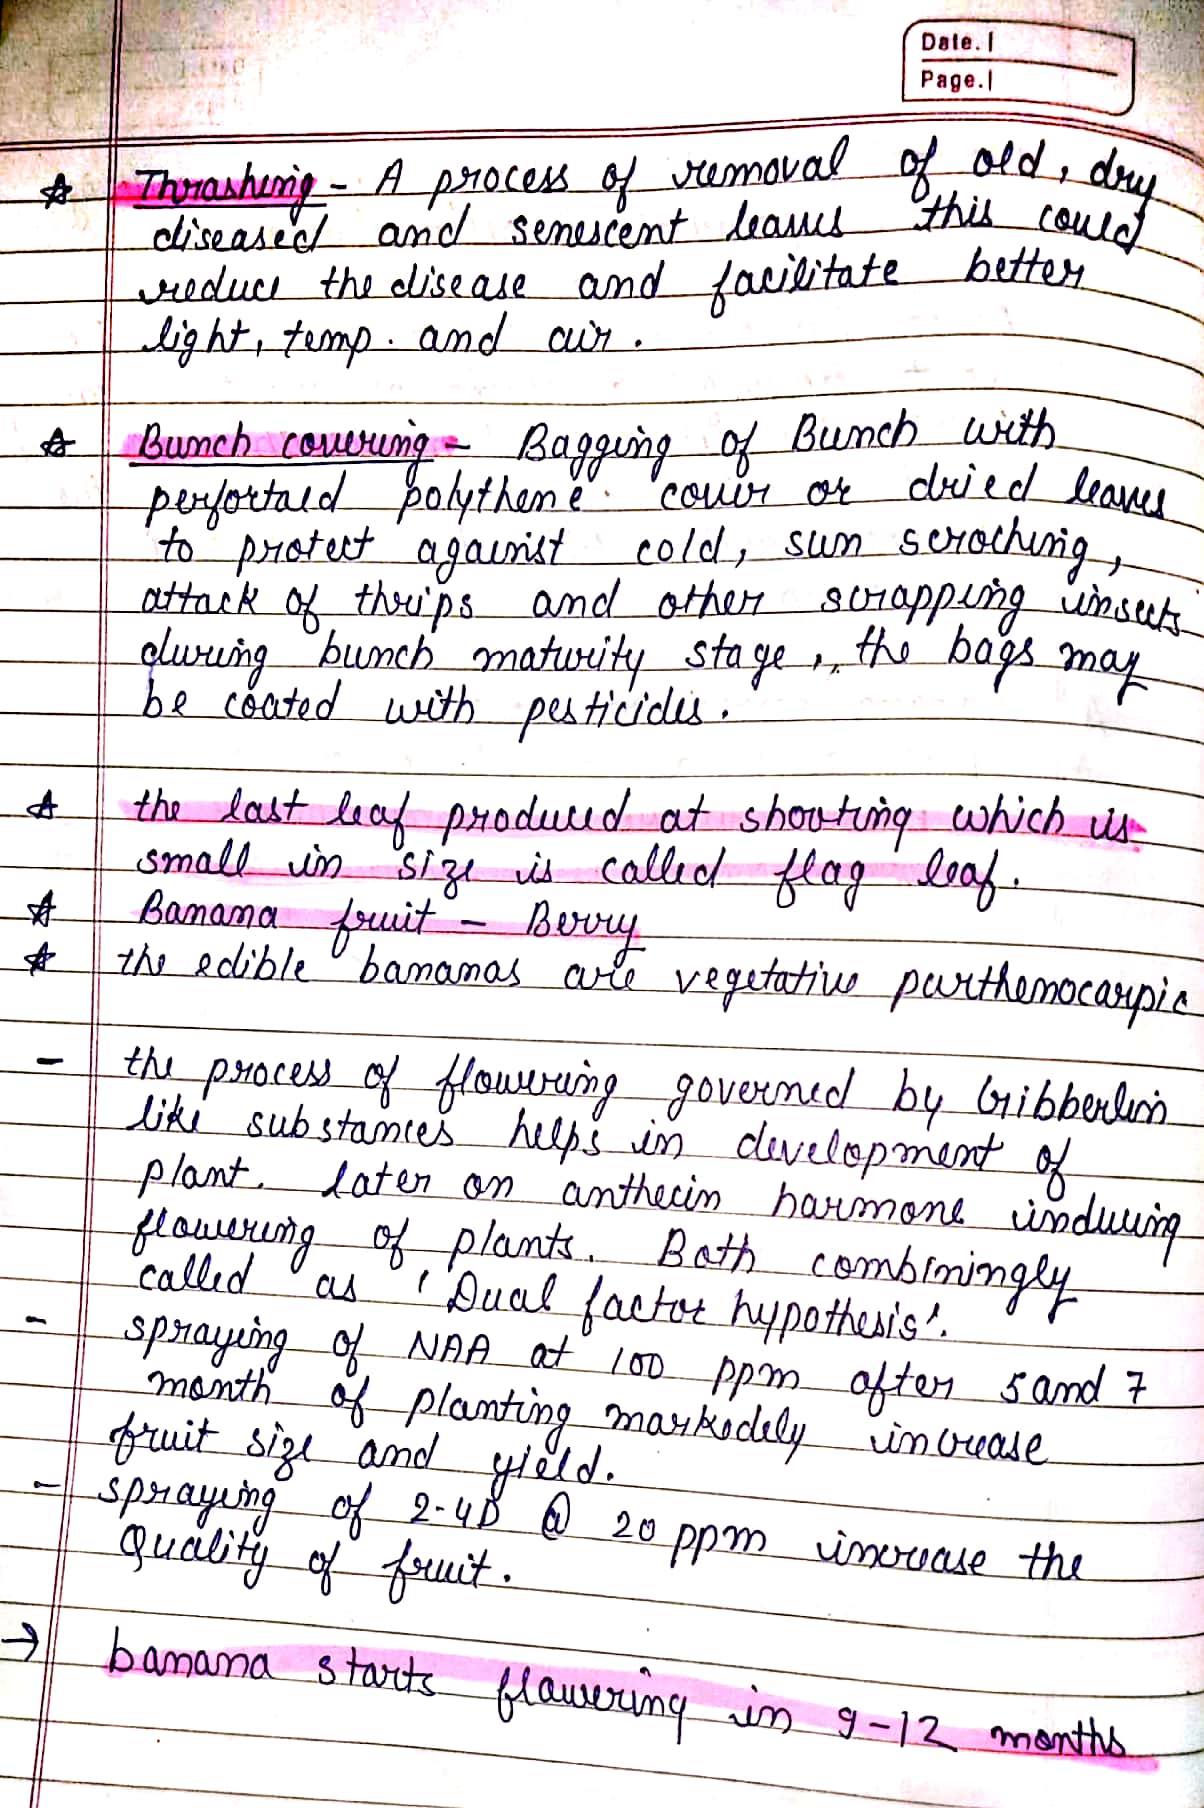 Date.
Page.
☆ Thrashing - A process of removal of old, dry
diseased and senescent leaves this could
reduce the disease and facilitate better
light, temp. and air.
☆ Bunch covering - Bagging of Bunch with
perfortaed polythene cover or dried leaves
to protect against cold, sun scroching,
attack of thrips and other scrapping insects
during bunch maturity stage, the bags may
be coated with pesticides.
☆ the last leaf produced at shooting which is
small in size is called flag leaf.
☆ Banana fruit - Berry
☆ the edible bananas are vegetative parthenocarpic
- the process of flowering governed by Gribberlin
like substances helps in development of
plant. later on anthecin harmone inducing
flowering of plants. Both combiningly
called as 'Dual factor hypothesis'.
- spraying of NAA at 100 ppm after 5 and 7
month of planting markedely increase
fruit size and yield.
- spraying of 2-4D @ 20 ppm increase the
Quality of fruit.
→ banana starts flowering in 9-12 months